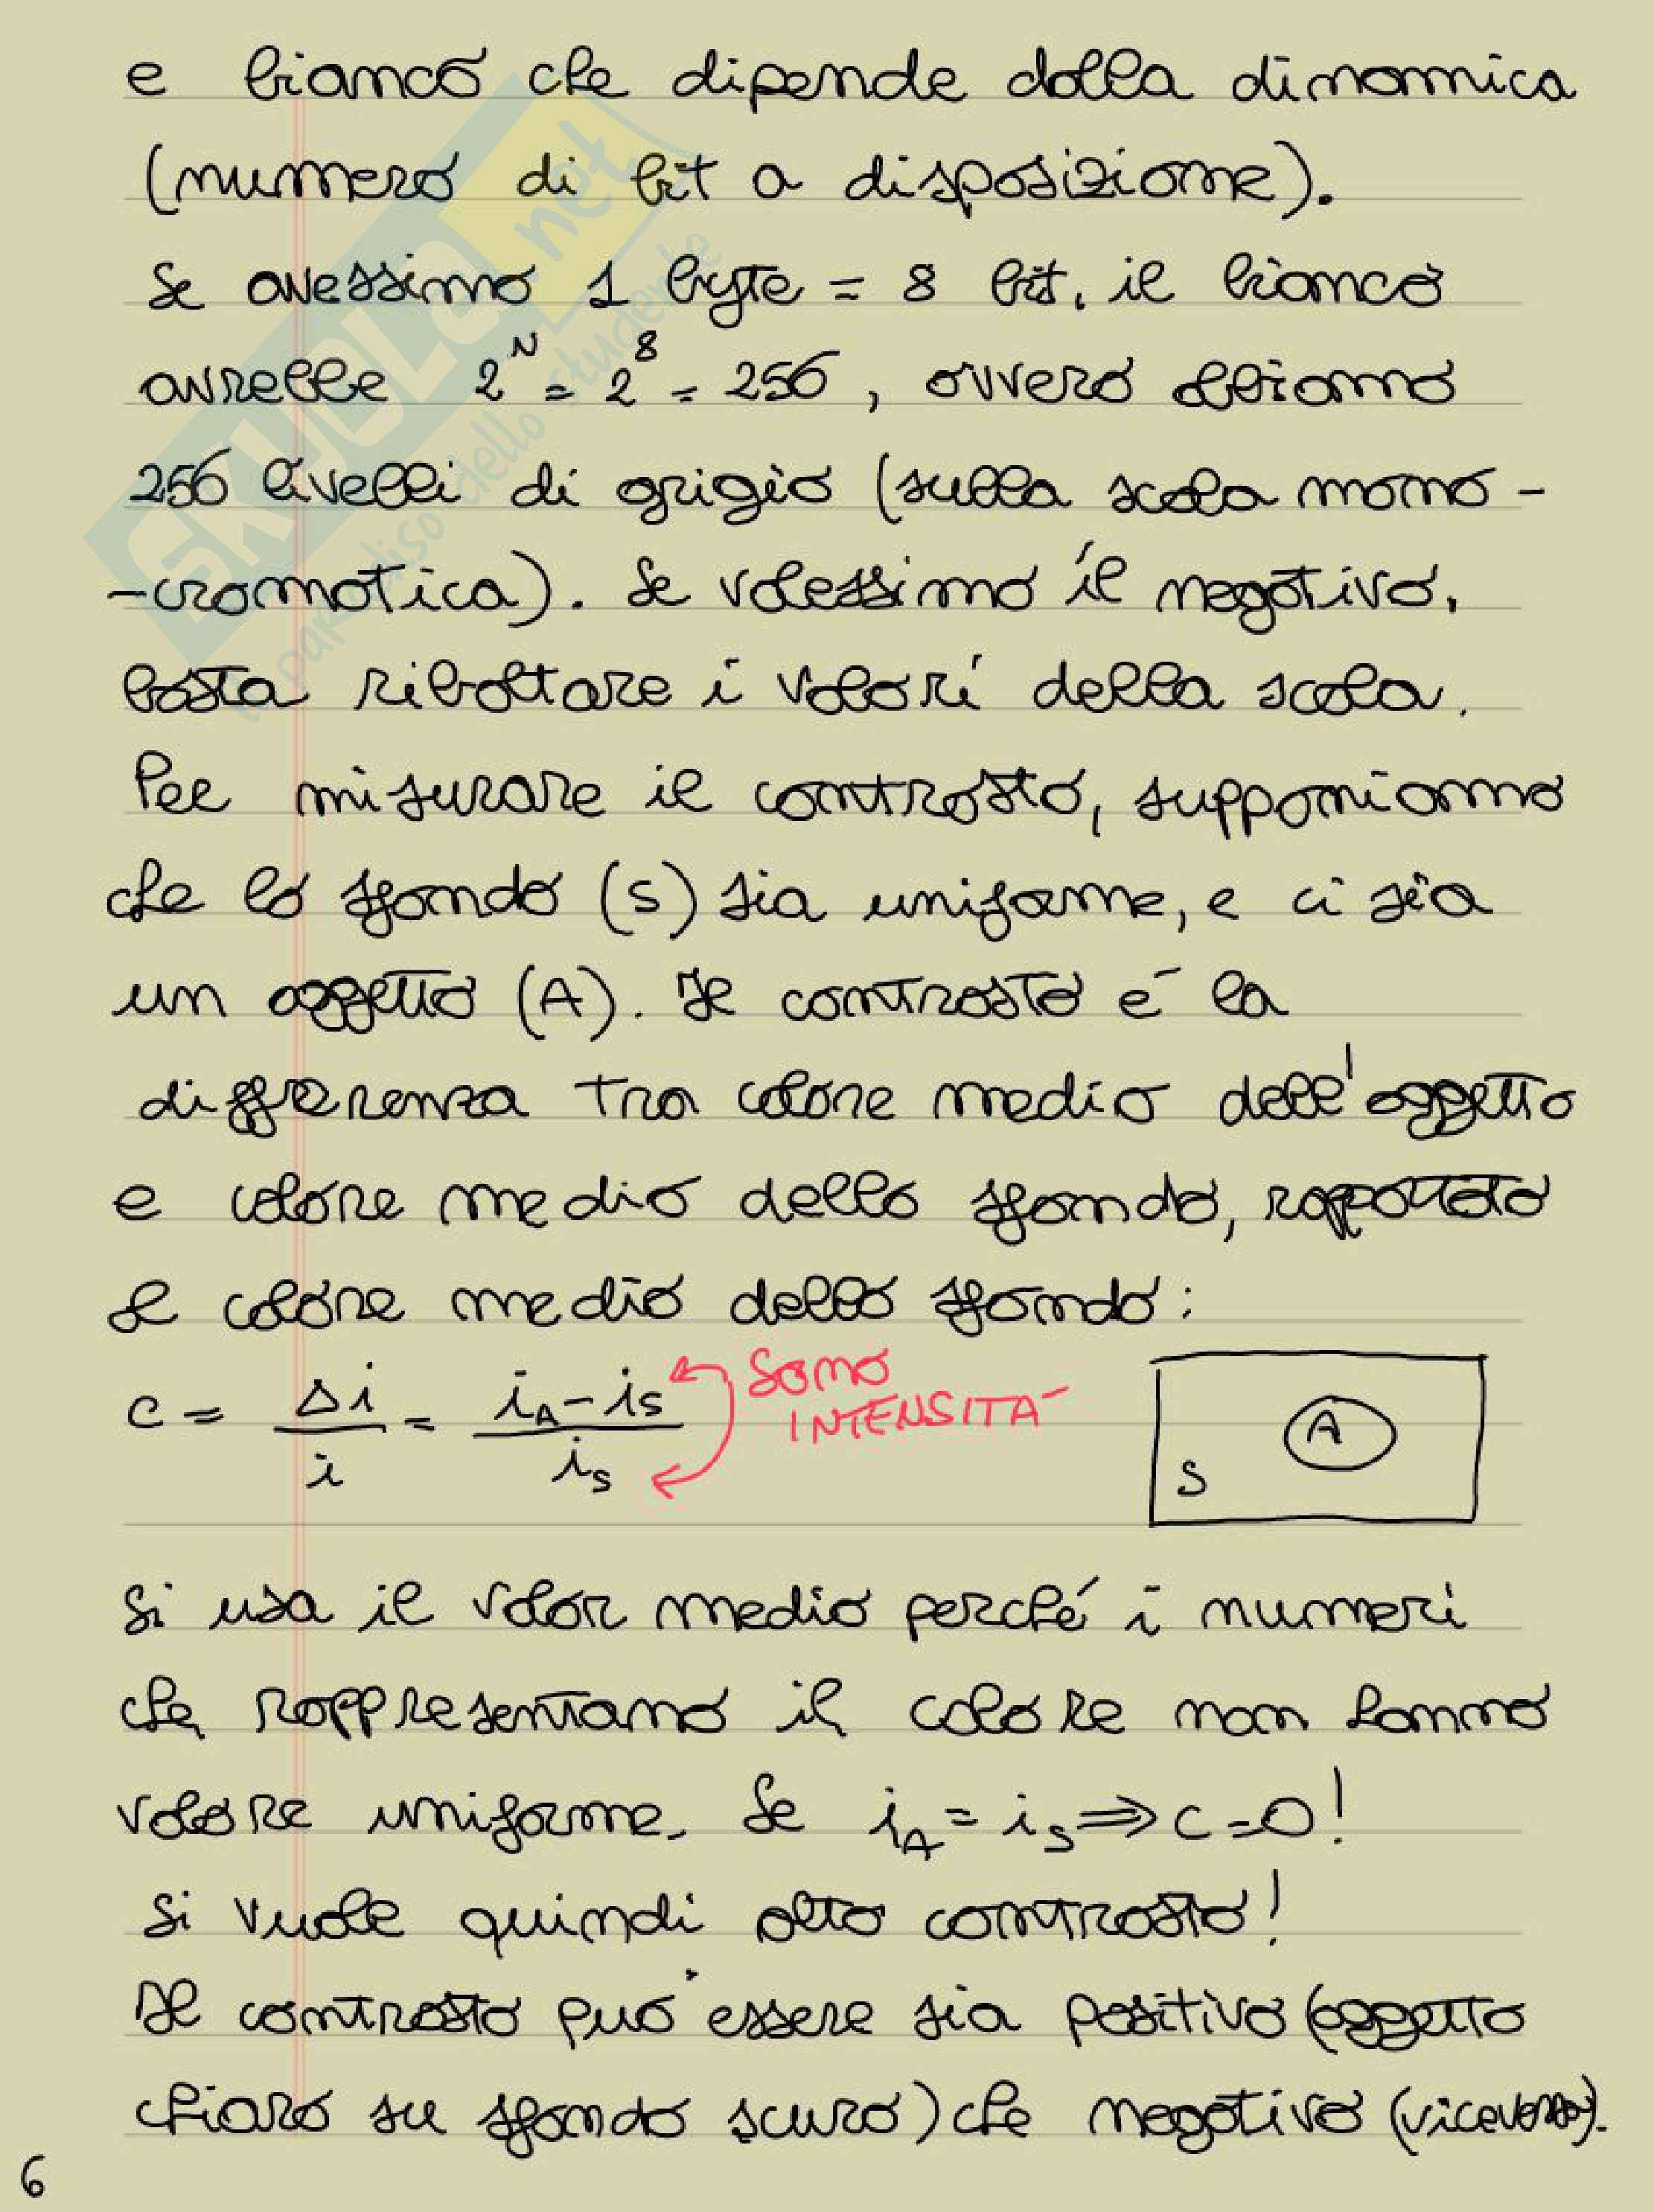 e bianco che dipende dalla dinamica
(numero di bit a disposizione).
Se avessimo 1 byte = 8 bit, il bianco
avrebbe 2^N = 2^8 = 256, ovvero abbiamo
256 livelli di grigio (sulla scala mono-
-cromatica). Se volessimo il negativo,
basta ribaltare i valori della scala.
Per misurare il contrasto, supponiamo
che lo sfondo (S) sia uniforme, e ci sia
un oggetto (A). Il contrasto é la
differenza tra colore medio dell'oggetto
e colore medio dello sfondo, rapportato
al colore medio dello sfondo:
c = Δi/i = (i_A - i_S)/i_S
SONO
INTENSITÁ
A
S
Si usa il valor medio perché i numeri
che rappresentano il colore non hanno
valore uniforme. Se i_A = i_S ⇒ c=0!
Si vuole quindi alto contrasto!
Il contrasto puó essere sia positivo (oggetto
chiaro su sfondo scuro) che negativo (viceversa).
6
SKUOLA.net
paradiso dello studente